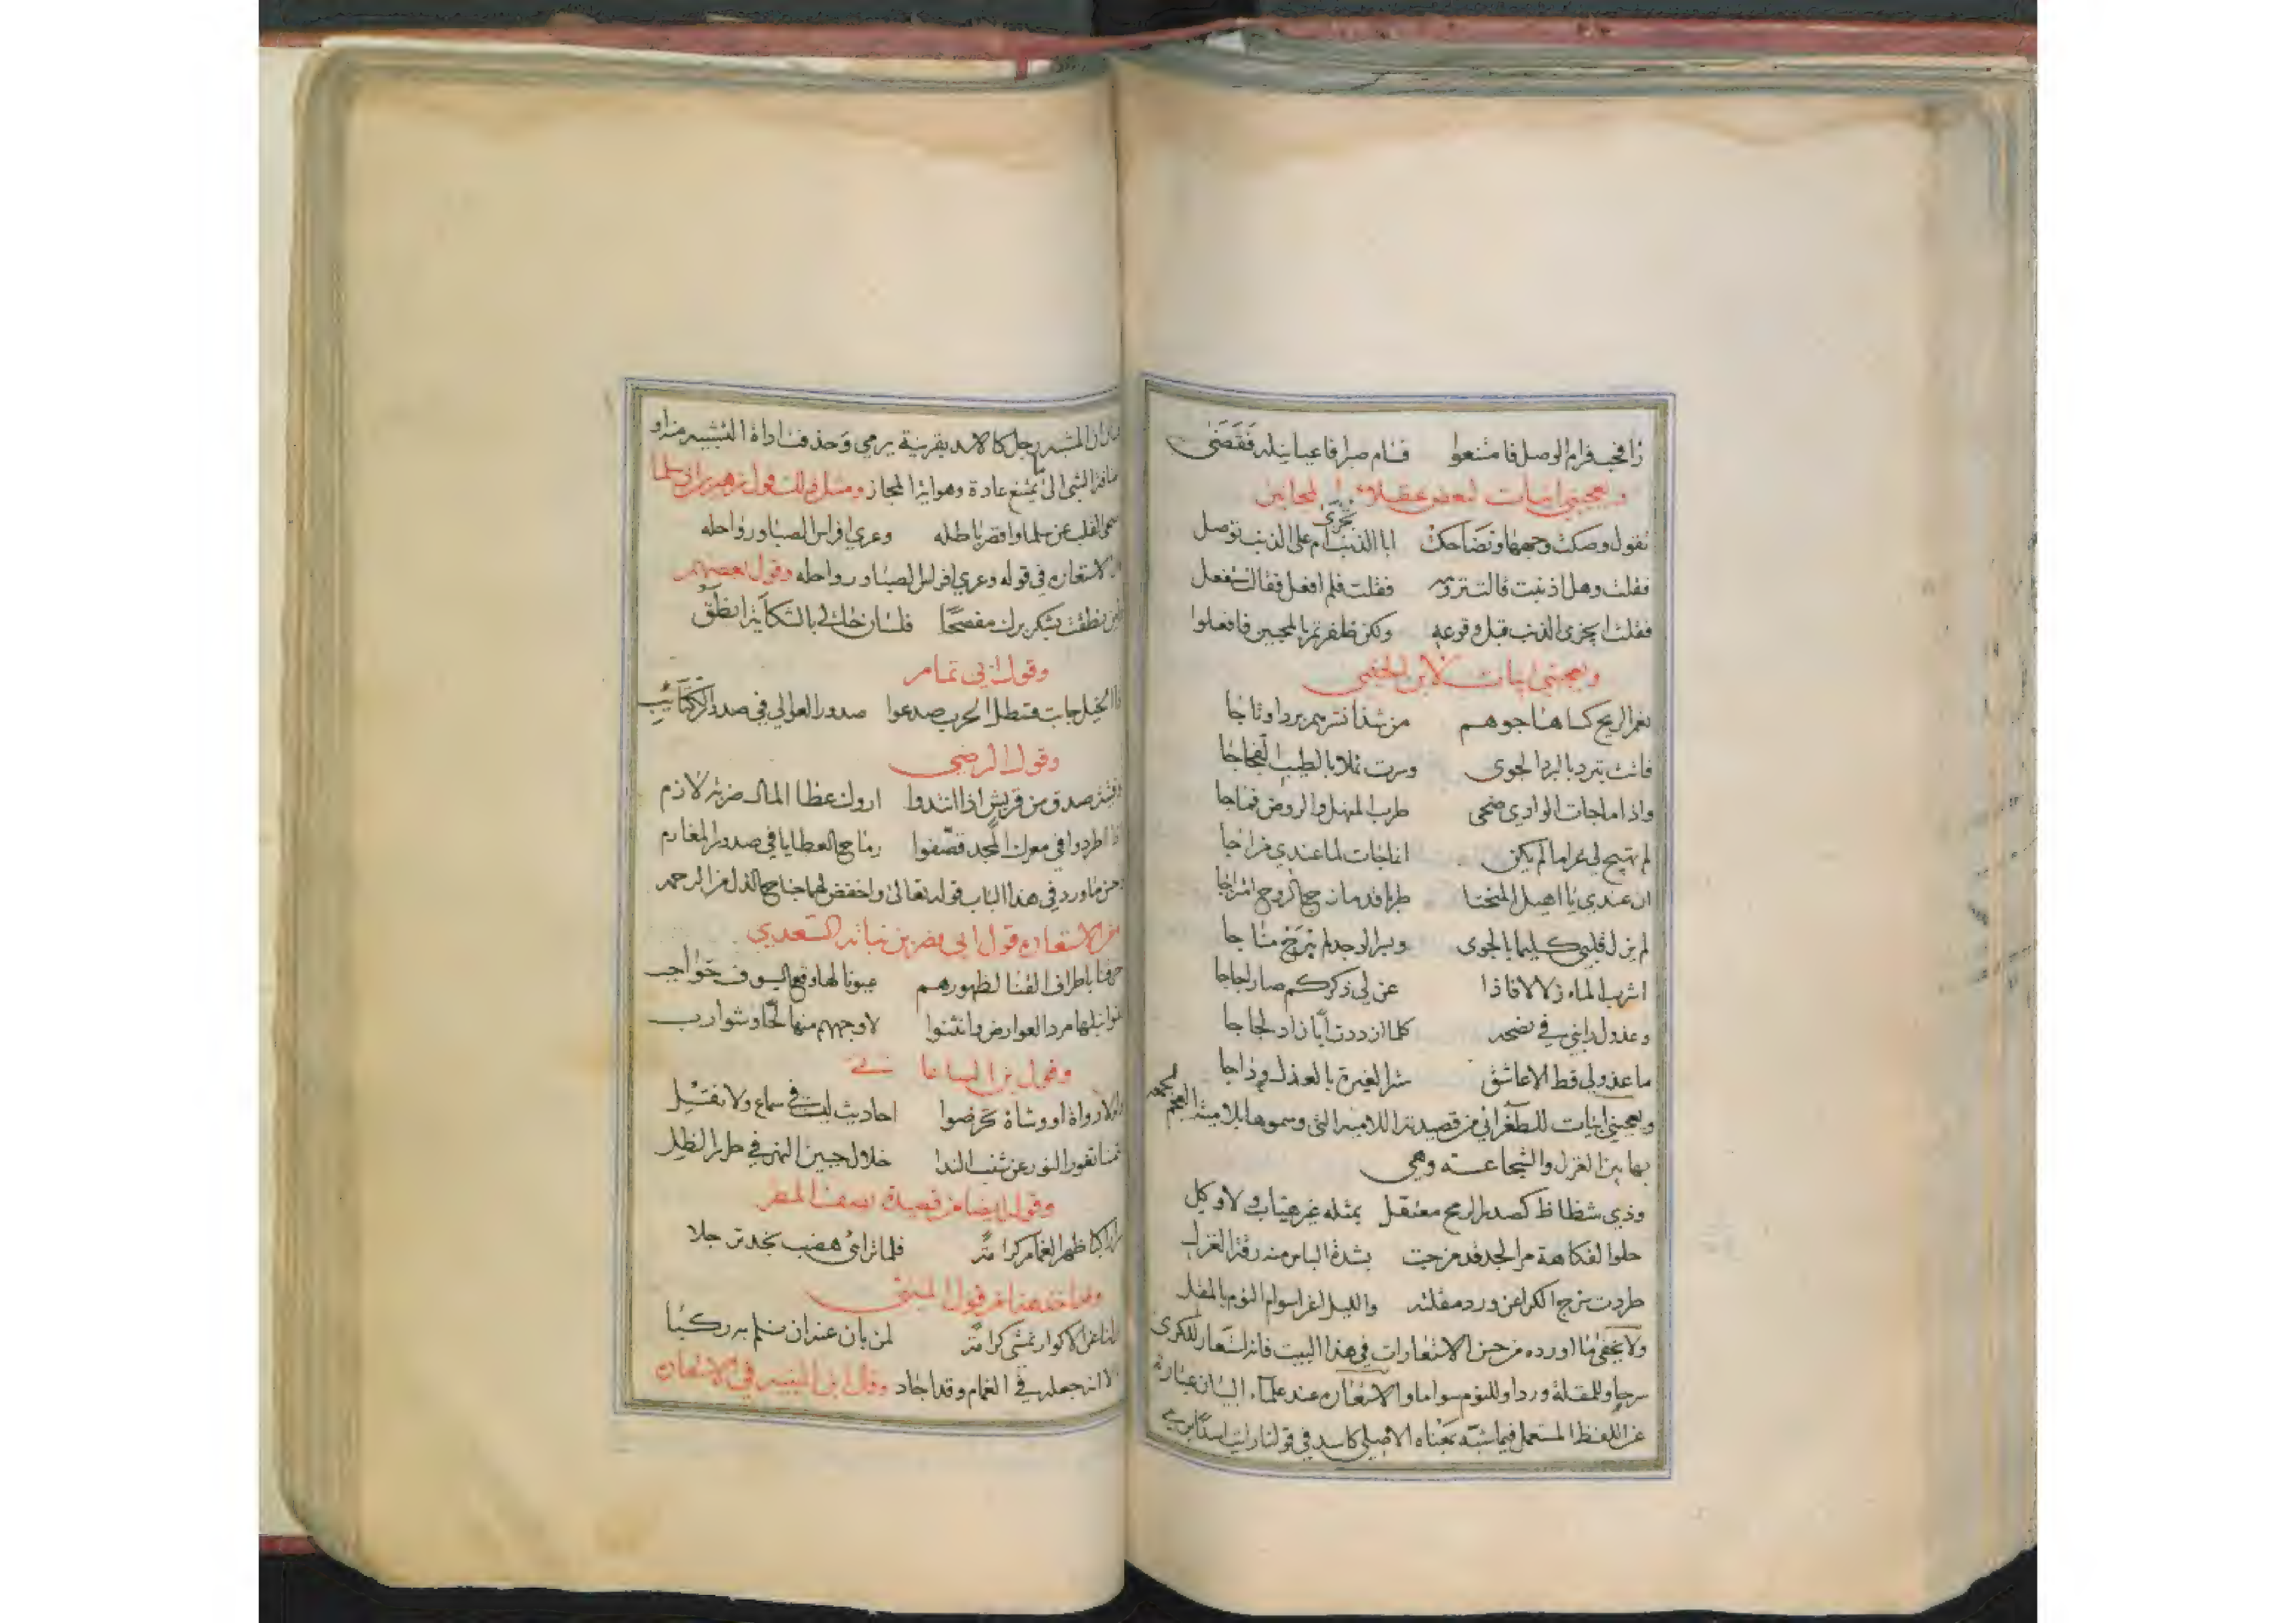 زافحب فرام الوصل فامتنعوا فسام صبرا فاعيا نيله فقضى
ويعجبني ابيات لبعض عقلاء المجانين
تقول وصكت وجهها وتضاحكت ابا الذنب تجزى ام على الذنب توصل
فقلت وهل اذنبت قالت فقلت فلم افعل فقالت ستفعل
فقلت ايجزى الذنب قبل وقوعه ولكن ظفرتم بالمحبين فافعلوا
ويعجبني ابيات لابن الخيمي
نعم الريح كساها جوهم من شذا نشرهم بردا وتاجا
فاتت تبرد بالبرد الجوى وسرت تملا بالطيب الفجاجا
واذا ما جات الوادي ضحى طرب المنهل والروض فماجا
لم تهيج لي غراما لم يكن انما جات لما عندي فراجا
ان عندي يا اهيل المنحنا طربا قد مازج الروح امتزاجا
لم يزل قلبي كليما بالجوى وبسر الوجد لم يبرح مناجا
اشرب الماء زلالا فاذا عن لي ذكركم صار اجاجا
وعذول رابني في نصحه كلما ازددت أبا زاد لجاجا
ما عذولي قط الا عاشق ستر الغيرة بالعذل وداجا
ويعجبني ابيات للطغرائي من قصيدته اللامية التي وسموها بلامية العجم لجمعه
بها بين الغزل والشجاعة وهي
وذي شطاط كصدر الرمح معتقل بمثله غير هياب ولا وكل
حلو الفكاهة مر الجد قد مزجت بشدة الباس منه رقة الغزل
طردت سرح الكرا عن ورد مقلته والليل اغرا سوام النوم بالمقل
ولا يخفى ما اورده من حسن الاستعارات في هذا البيت فانه استعار للكرى
سرحا وللمقلة وردا وللنوم سواما والاستعارة عند علماء البيان عبارة
عن اللفظ المستعمل فيما شبه بمعناه الاصلي كاسد في قولنا رايت اسدا يرمي
فان المشبه رجل كالاسد بقرينة يرمي وحذفت اداة التشبيه منه او
اضافة الشي الى ما يمتنع عادة وهو ايضا المجاز ومثل ذلك قول زهير بن ابي سلما
صحى القلب عن سلما واقصر باطله وعري افراس الصبا ورواحله
الاستعارة في قوله وعري افراس الصبا ورواحله وقول بعضهم
ولئن نطقت بشكر برك مفصحا فلسان حالي بالشكاية انطق
وقول ابي تمام
اذا الخيل جابت قسطل الحرب صدعوا صدور العوالي في صدور الكتائب
وقول الرضي
وفتية صدق من قريش اذا انتدوا اروك عطا المال ضربة لازم
اذا طردوا في معرك المجد قصفوا رماح العطايا في صدور المغارم
واحسن ما ورد في هذا الباب قوله تعالى واخفض لهما جناح الذل من الرحمة
ومن الاستعارة قول ابي نصر بن نباته السعدي
خرقنا باطراف القنا لظهورهم عيونا لها وقع السيوف حواجب
لقوا نبلها مرد العوارض وانثنوا لاوجههم منها لحا وشوارب
وقول بن الساعاتي
ولولا رواة او وشاة تخرضوا احاديث ليست في سماع ولا نقل
لثمنا ثغور النور عن شنب الندا خلال جبين النهر في طرر الظل
وقوله ايضا من قصيدة يصف المطر
سرا راكبا ظهر الغمام كرامة فلما تراى هضب نجد ترجلا
وقد اخذ هذا من قول المتنبي
نزلنا عن الاكوار نمشي كرامة لمن بان عنه ان نلم به ركبا
الا انه جعله في الغمام وقد اجاد وقال ابن النبيه في الاستعارة